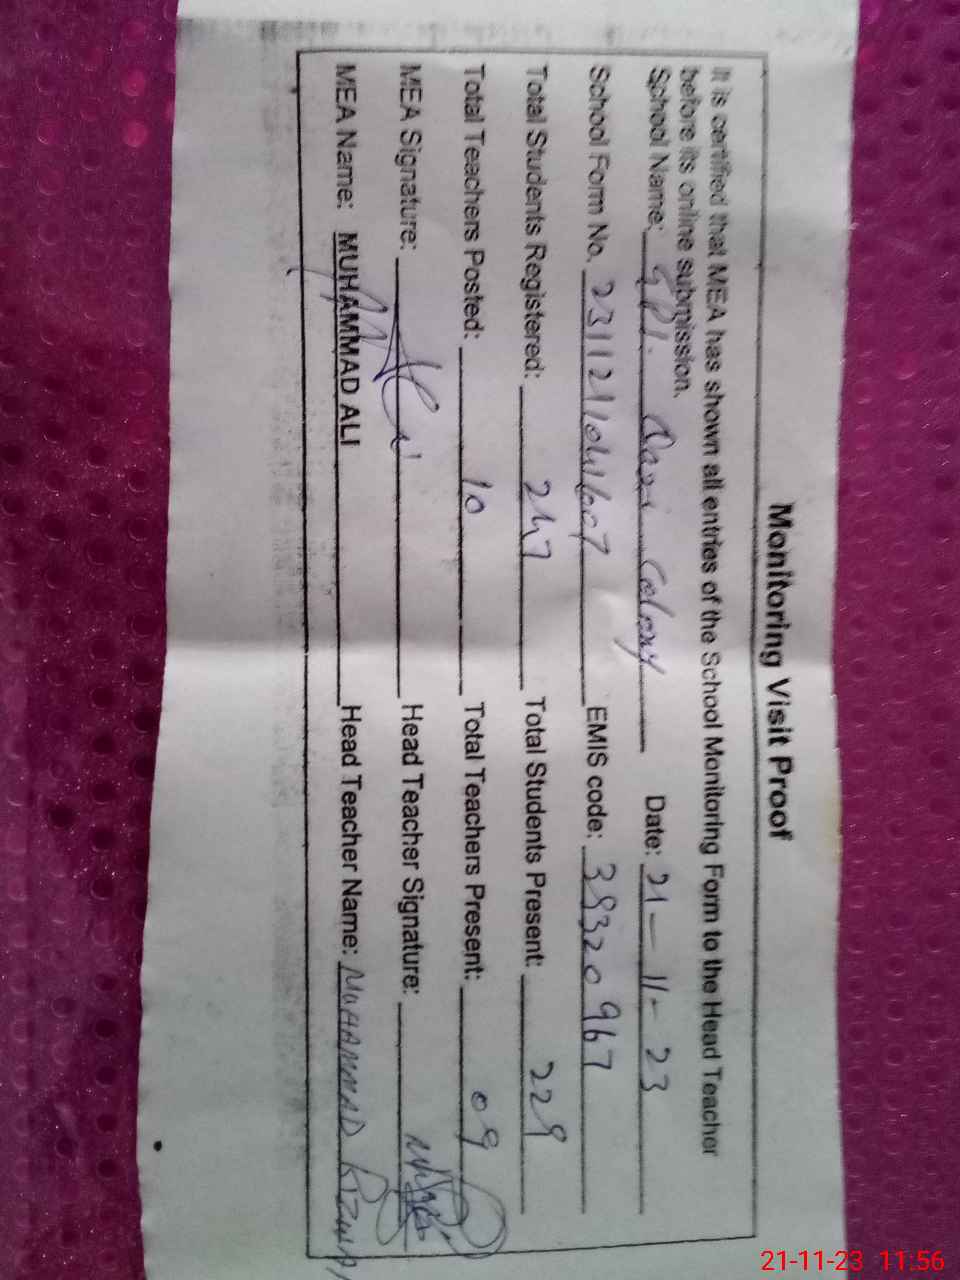 Monitoring Visit Proof
It is certified that MEA has shown all entries of the School Monitoring Form to the Head Teacher
before its online submission.
School Name: Colony Date: 21-11-23
School Form No. EMIS code: 38320967
Total Students Registered: 247 Total Students Present: 229
Total Teachers Posted: 10 Total Teachers Present: 09
MEA Signature: Head Teacher Signature:
MEA Name: MUHAMMAD ALI Head Teacher Name: MUHAMMAD
21-11-23 11:56